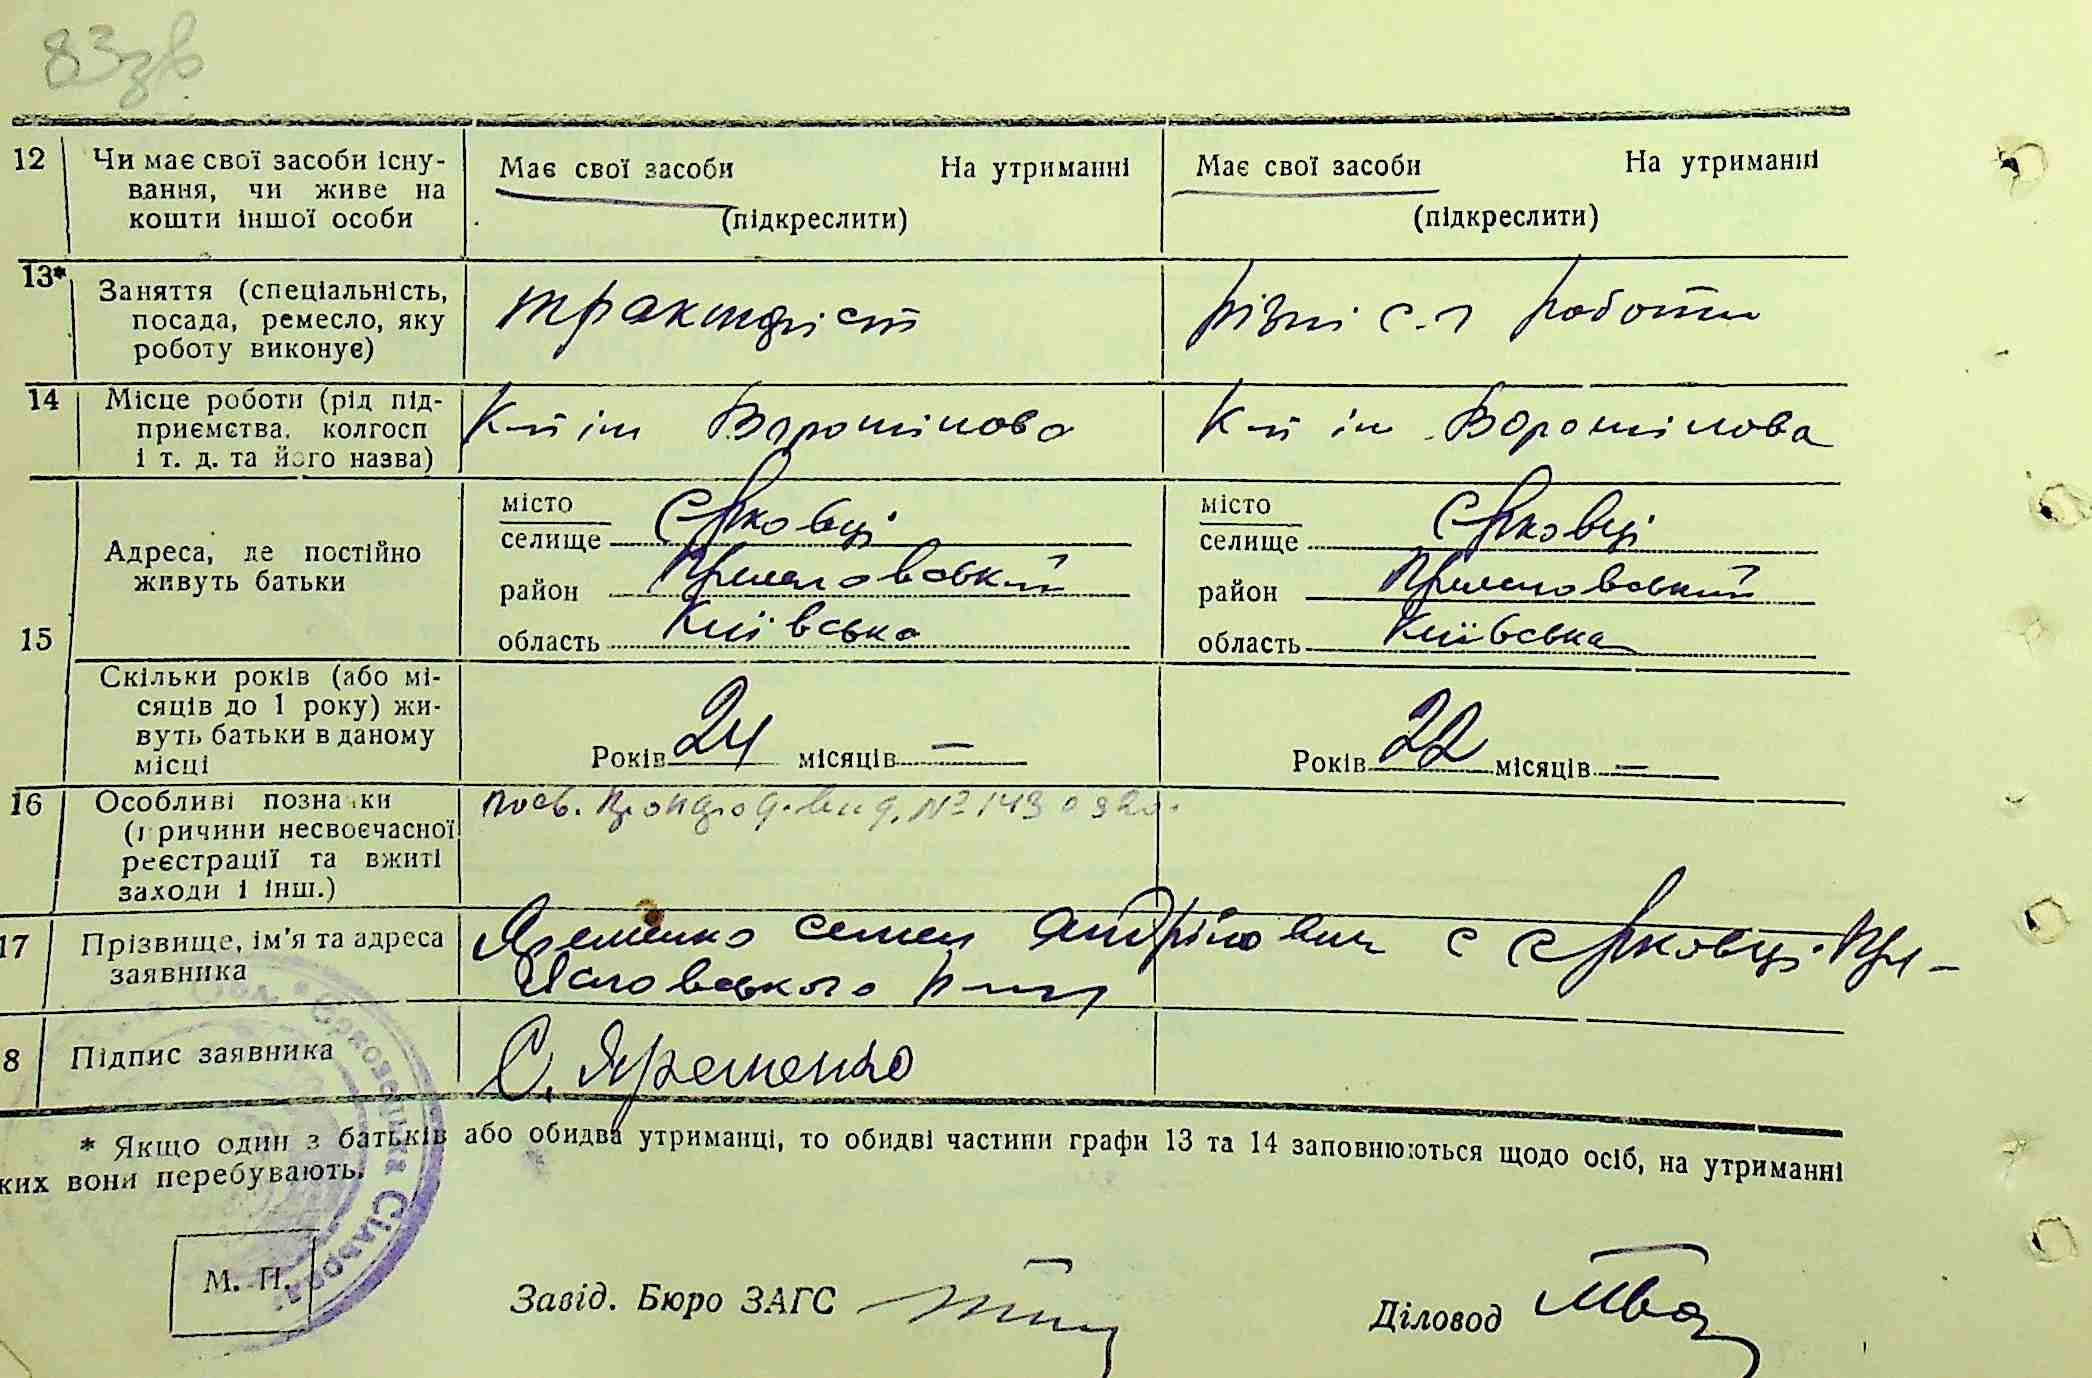 83зв
12 Чи має свої засоби існу-
вання, чи живе на
кошти іншої особи
Має свої засоби На утриманні
(підкреслити)
Має свої засоби На утриманні
(підкреслити)
13* Заняття (спеціальність,
посада, ремесло, яку
роботу виконує)
тракторіст
різні с.г роботи
14 Місце роботи (рід під-
приємства, колгосп
і т. д. та його назва)
К-п ім Ворошилова
К-п ім Ворошілова
15 Адреса, де постійно
живуть батьки
місто
селище Єрковці
район
область Київська
місто
селище Єрковці
район
область Київська
Скільки років (або мі-
сяців до 1 року) жи-
вуть батьки в даному
місці
Років 24 місяців —
Років 22 місяців —
16 Особливі познаки
(причини несвоєчасної
реєстрації та вжиті
заходи і інш.)
посв. № 143
17 Прізвище, ім'я та адреса
заявника
Яременко Семен Андрійович с Єрковці. Пре-
яславського р-ну
8 Підпис заявника
С. Яременко
* Якщо один з батьків або обидва утриманці, то обидві частини графи 13 та 14 заповнюються щодо осіб, на утриманні
ких вони перебувають.
Єрковецька Сільрада
М. П.
Завід. Бюро ЗАГС
Діловод